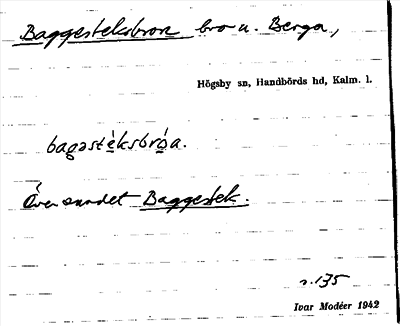 Baggesteksbron bro u. Berga,
Högsby sn, Handbörds hd, Kalm. l.
bagəstèksbróa.
Över sundet Baggestek.
s. 135
Ivar Modéer 1942